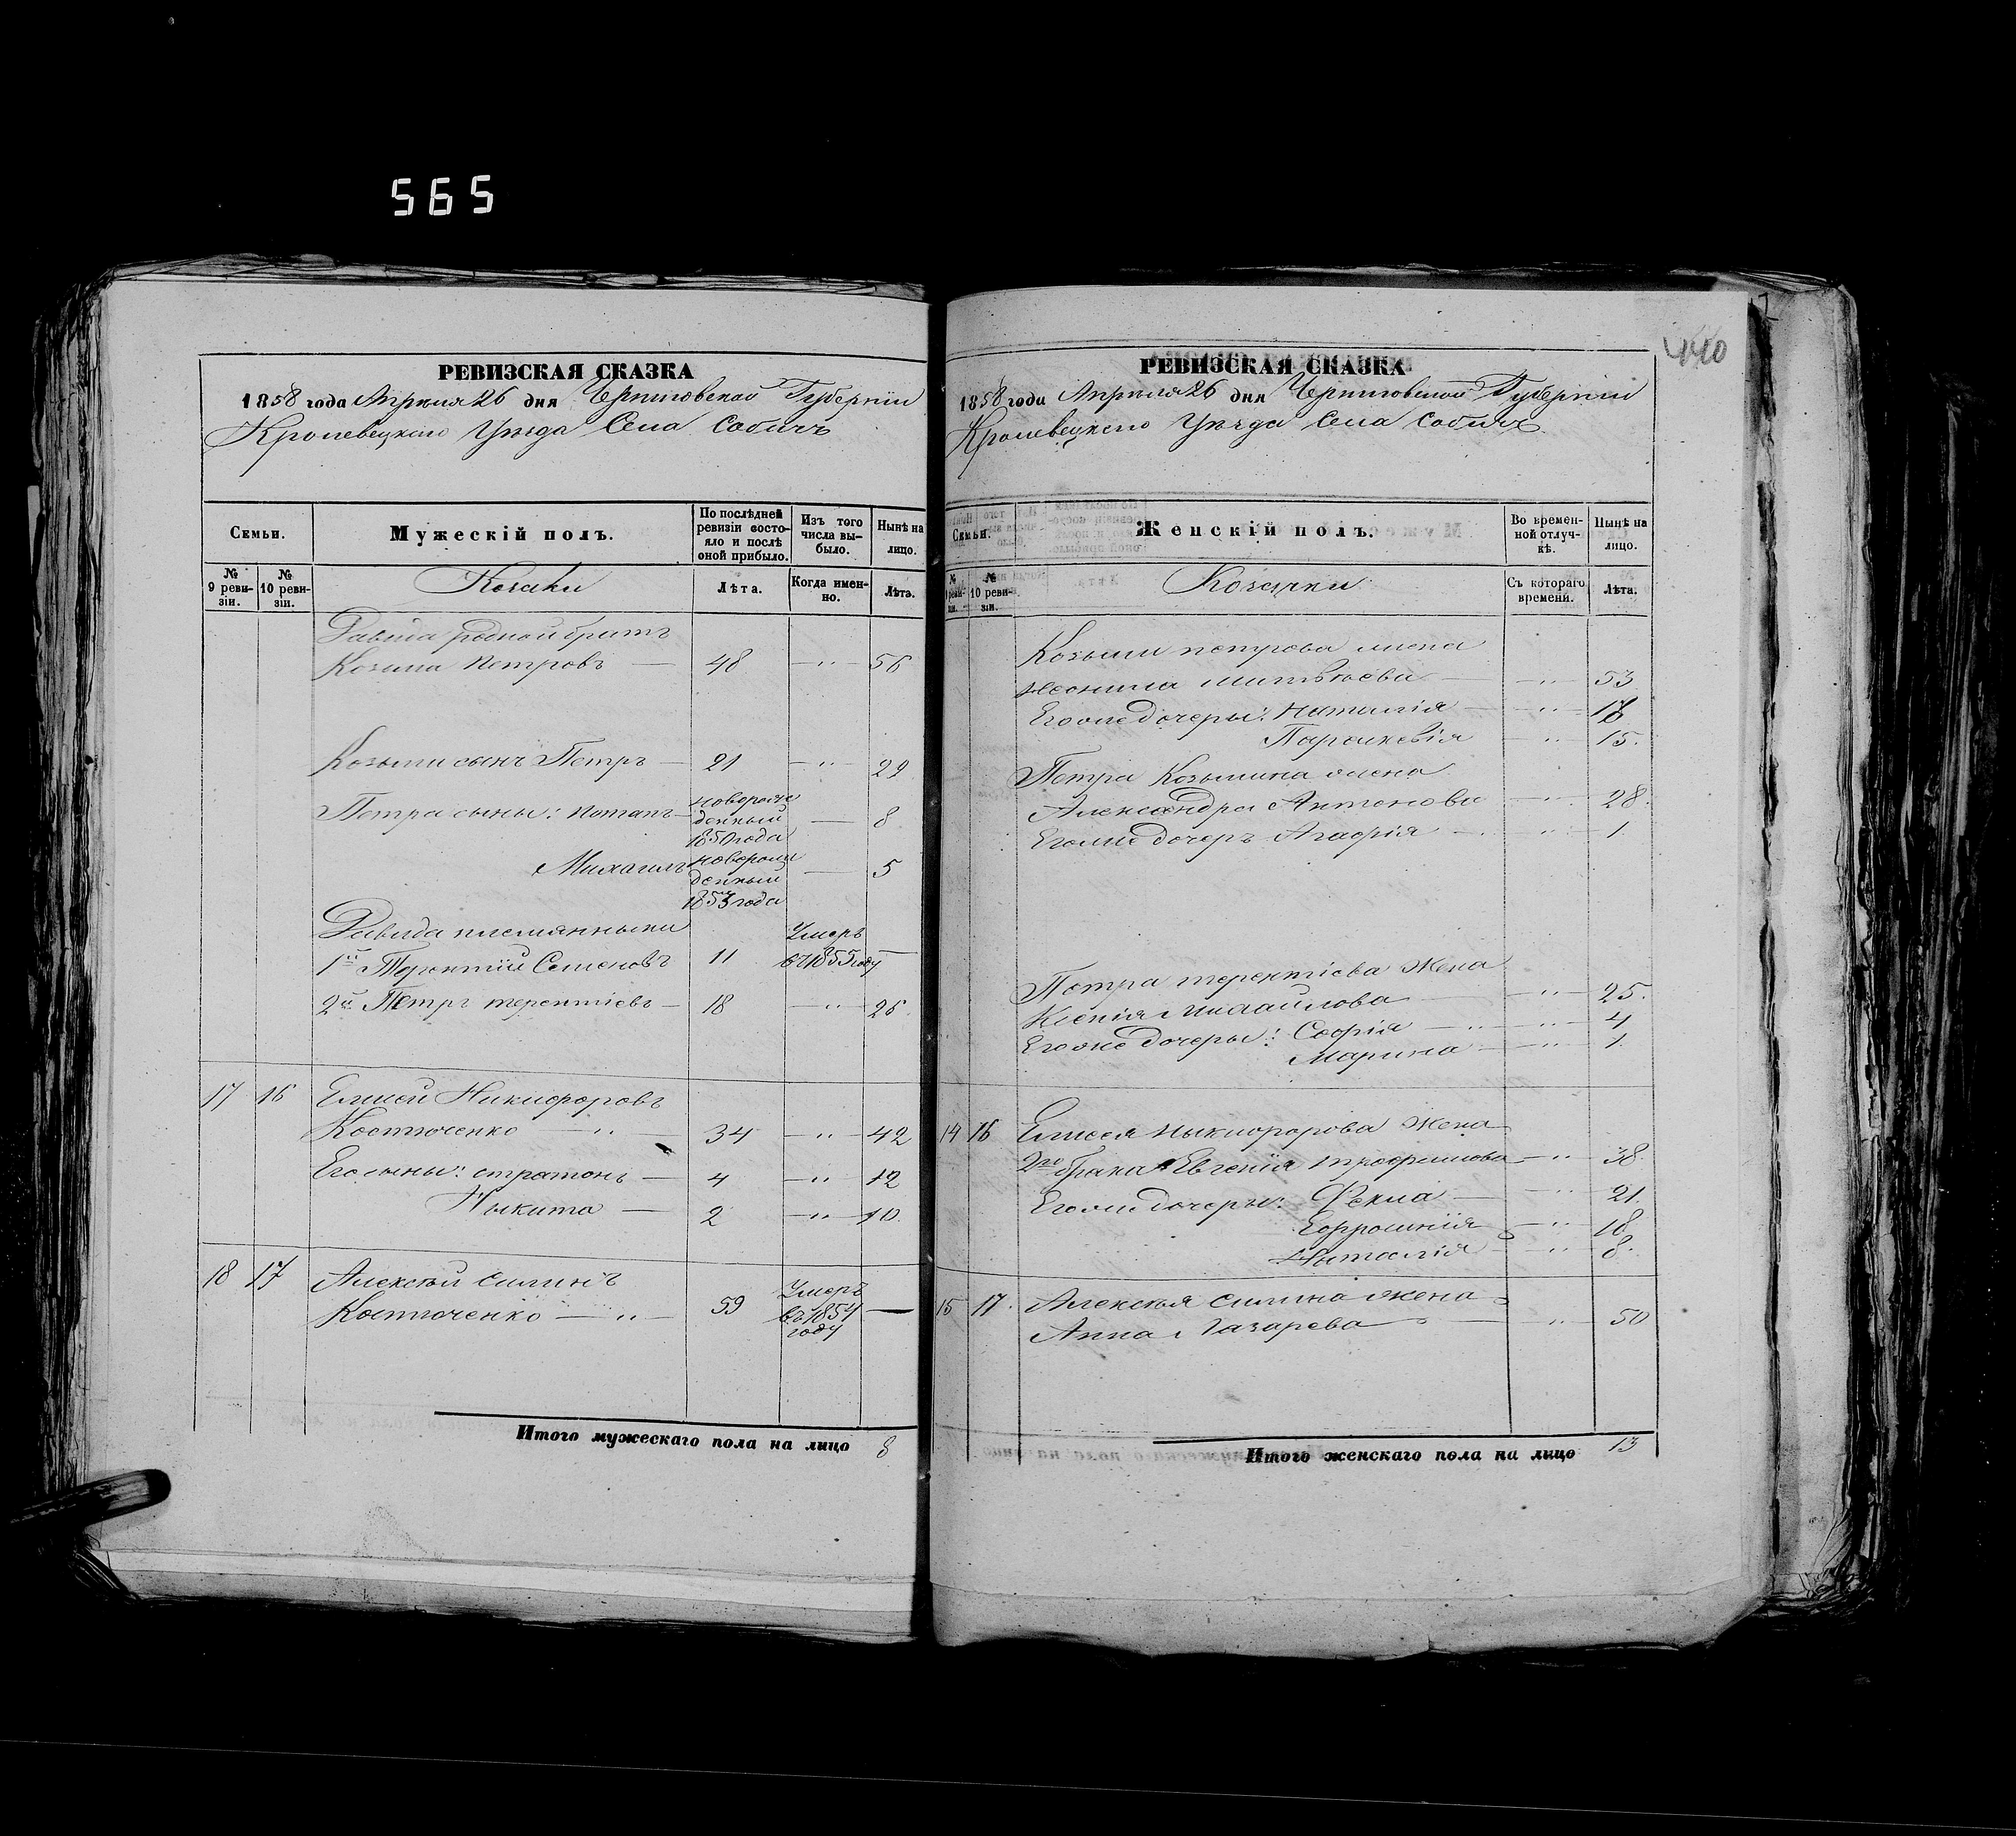 565
440
РЕВИЗСКАЯ СКАЗКА
1858 года Апреля 26 дня Черниговской Губерніи
Кролевецкого Уезда Села Собичъ
Семьи.
Мужескій полъ.
По послѣдней ревизіи состояло и послѣ оной прибыло.
Изъ того числа выбыло.
Нынѣ на лицо.
№ 9 ревизіи.
№ 10 ревизіи.
Козаки
Лѣта.
Когда именно.
Лѣта.
Давида родной братъ
Козьма Петровъ — 48 — 〃 — 56
Козьми сынъ Петръ — 21 — 〃 — 29
Петра сыны: Потапъ — новорожденный 1850 года — 8
Михаилъ новорожденный 1853 года — 5
Давида племянники
1й Терентій Семеновъ 11 Умеръ въ 1855 году —
2й Петръ терентіевъ — 18 — 〃 — 26
17 16 Елисей Никифоровъ
Костюченко — 〃 — 34 — 〃 — 42
Его сыны: стратонъ — 4 — 〃 — 12
Никита — 2 — 〃 — 10
18 17 Алексѣй Силинъ
Костюченко — 〃 — 59 Умеръ въ 1854 году —
Итого мужескаго пола на лицо 8
РЕВИЗСКАЯ СКАЗКА
1858 года Апреля 26 дня Черниговской Губерніи
Кролевецкого Уезда Села Собичъ
Семьи.
Женскій полъ.
Во временной отлучкѣ.
Нынѣ на лицо.
№ 9 ревизіи.
№ 10 ревизіи.
Козачки
Съ котораго времени.
Лѣта.
Козьми петрова жена
Неонила Матвѣева — 〃 — 53
Его же дочеры: Наталія — 〃 — 17
Параскевія — 〃 — 15
Петра Козьмина жена
Александра Антонова — 〃 — 28
Его же дочеръ Агафія — 〃 — 1
Петра терентіева Жена
Ксенія Михайлова — 〃 — 25
Его же дочеры: Софія — 〃 — 4
Марина — 〃 — 1
14 16 Елисея Никифорова Жена
2го брака Евгенія трофимова — 〃 — 38
Его же дочеры: Фекла — 〃 — 21
Ефросинія — 〃 — 18
Наталія — 〃 — 8
15 17 Алексѣя Силина жена
Анна Лазарева — 〃 — 50
Итого женскаго пола на лицо 13